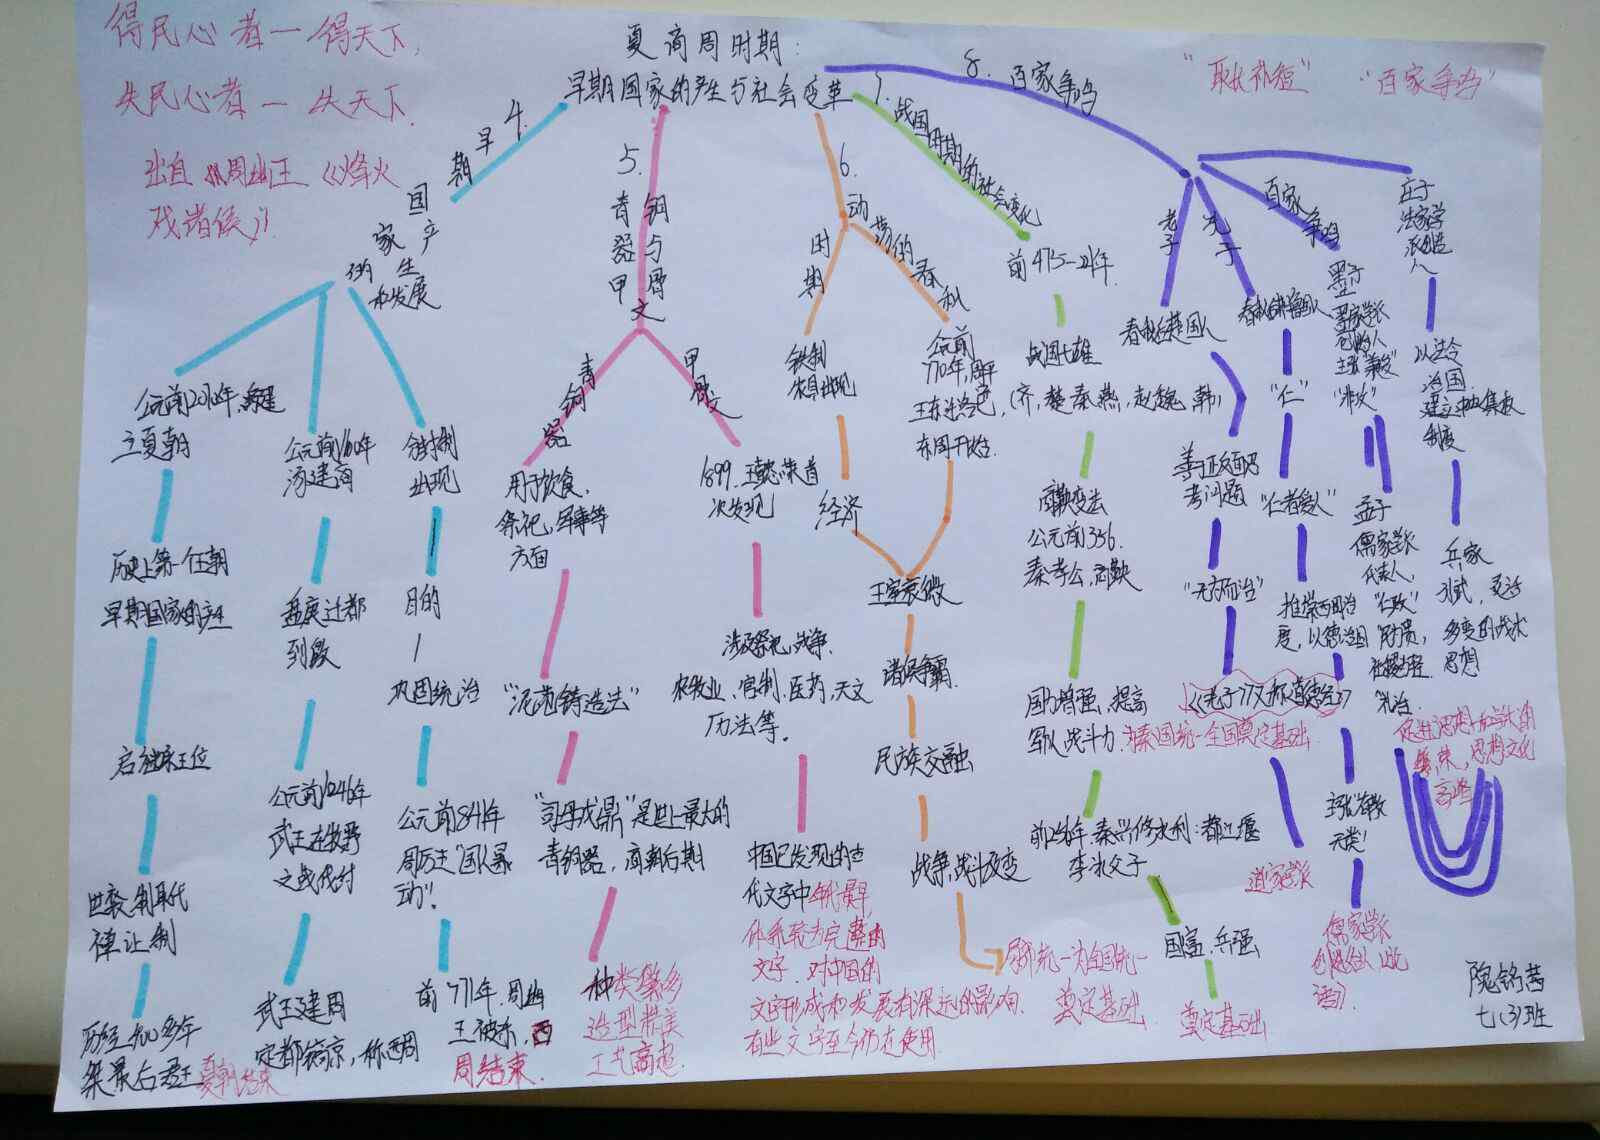 得民心者一得天下,
失民心者一失天下.
出自《周幽王《烽火
戏诸侯》!
夏商周时期:
早期国家的产生与社会变革
"百家争鸣"
4.早期
国家产生
的
和发展
公元前2070年,禹建
立夏朝
历史上第一个王朝
早期国家的产生
启继承王位
世袭制取代
禅让制
历经400多年
桀最后君王 夏朝结束
公元前1600年
汤建商
盘庚迁都
到殷
公元前1046年
武王在牧野
之战伐纣
武王建周
定都镐京,称西周
分封制
出现
目的
巩固统治
公元前841年
周厉王"国人暴
动".
前771年.周幽
王被杀,西
周结束.
5.青铜器与甲骨文
青铜器
用于饮食,
祭祀,军事等
方面
"泥范铸造法"
"司母戊鼎"是世上最大的
青铜器,商朝后期
种类繁多
造型精美
工艺高超.
甲骨文
1899.王懿荣首
次发现
涉及祭祀,战争.
农牧业.官制.医药.天文
历法等。
中国已发现的古
代文字中年代最早,
体系较为完整的
文字.对中国的
文字形成和发展有深远的影响.
有些文字至今仍在使用.
6.动荡的春秋时期
铁制
农具出现
经济
公元前
770年,周平
王东迁洛邑,
东周开始.
王室衰微
诸侯争霸.
民族交融
战争,战斗改变
为全国统一
奠定基础.
7.战国时期的社会变化
前475-221年
战国七雄
(齐,楚秦燕,赵魏,韩)
商鞅变法
公元前356.
秦孝公,商鞅
国力增强,提高
军队战斗力,为秦国统一全国奠定基础.
前256年.秦兴修水利:都江堰
李冰父子.
国富,兵强
奠定基础
8.百家争鸣
老子
春秋后楚国人
善于正反面思
考问题
"无为而治"
《老子》又称《道德经》
道家学派
孔子
春秋后鲁国人
"仁"
"仁者爱人"
推崇西周制
度,以德治国
主张有教
无类!
儒家学派
创始人
百家争鸣
墨子
墨家学派
主张"兼爱"
"非攻"
孟子
儒家学派
代表人,
"仁政"
庄子
法家学
派创造
人
以法令
治国,
建立中央集权
制度
兵家
灵活
多变的战术
思想
促进思想和学术的
繁荣,思想文化
高峰
七(3)班